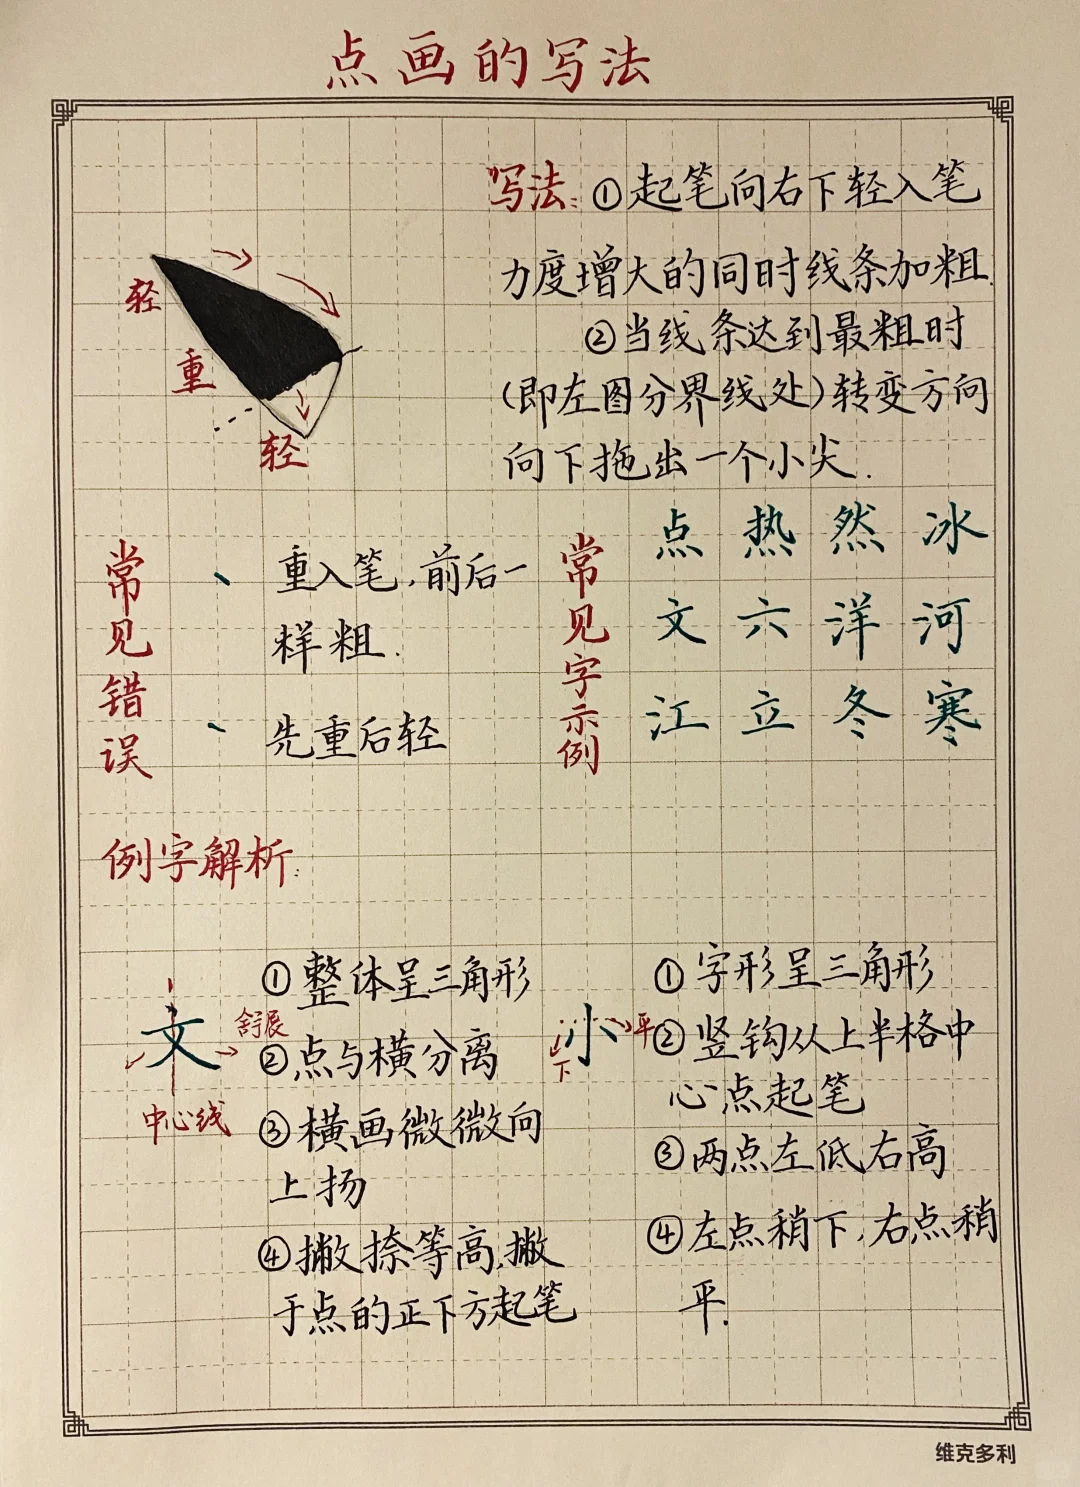 点画的写法
写法:①起笔向右下轻入笔
力度增大的同时线条加粗.
②当线条达到最粗时
(即左图分界线处)转变方向
向下拖出一个小尖.
轻
重
轻
常见错误
重入笔,前后一
样粗.
先重后轻
常见字示例
点热然冰
文六洋河
江立冬寒
例字解析:
文
舒展
中心线
①整体呈三角形
②点与横分离
③横画微微向
上扬
④撇捺等高,撇
于点的正下方起笔
小
平
下
①字形呈三角形
②竖钩从上半格中
心点起笔
③两点左低右高
④左点稍下,右点稍
平.
维克多利